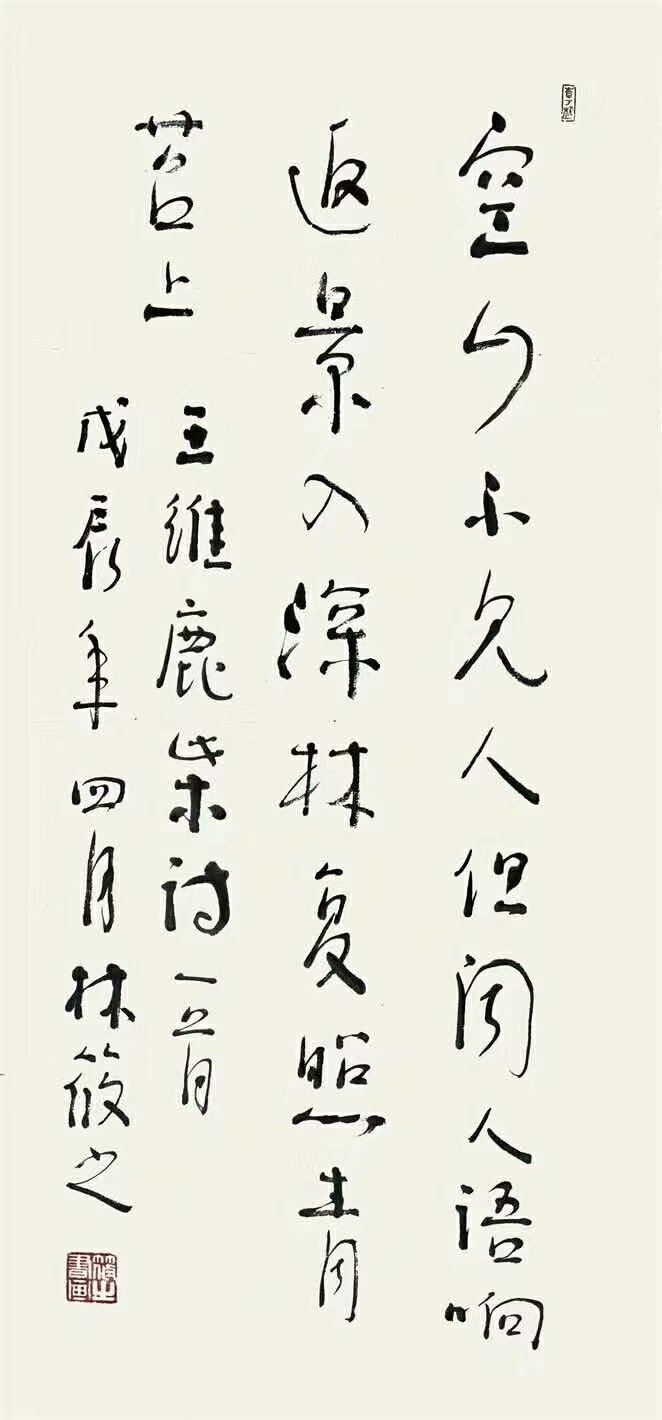 空山不见人但闻人语响
返景入深林复照青
苔上
王维鹿柴诗一首
戊辰年四月林筱之
筱之書画